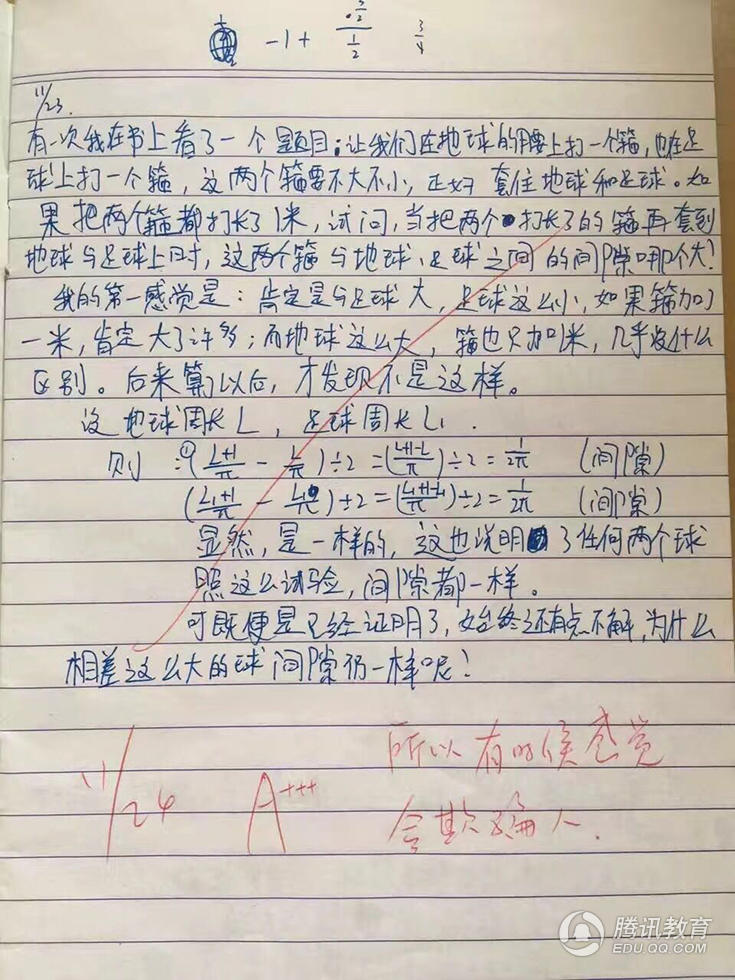 -1+ 3/2 / 1/2 3/4
11/23.
有一次我在书上看了一个题目:让我们在地球的腰上打一个箍,也在足
球上打一个箍,这两个箍要不大不小,正好套住地球和足球。如
果把两个箍都打长了1米,试问,当把两个打长了的箍再套到
地球与足球上时,这两个箍与地球、足球之间的间隙哪个大?
我的第一感觉是:肯定是与足球大,足球这么小,如果箍加
一米,肯定大了许多;而地球这么大,箍也只加1米,几乎没什么
区别。后来算了以后,才发现不是这样。
设地球周长L,足球周长L₁.
则:(L+1/π - L/π)÷2=(L+1-L/π)÷2=1/2π (间隙)
(L₁+1/π - L₁/π)÷2=(L₁+1-L₁/π)÷2=1/2π (间隙)
显然,是一样的,这也说明了任何两个球
照这么试验,间隙都一样。
可既便是已经证明了,始终还有点不解,为什么
相差这么大的球间隙仍一样呢?
11/24 A+++ 所以有时候感觉
会欺骗人.
腾讯教育
EDU.QQ.COM